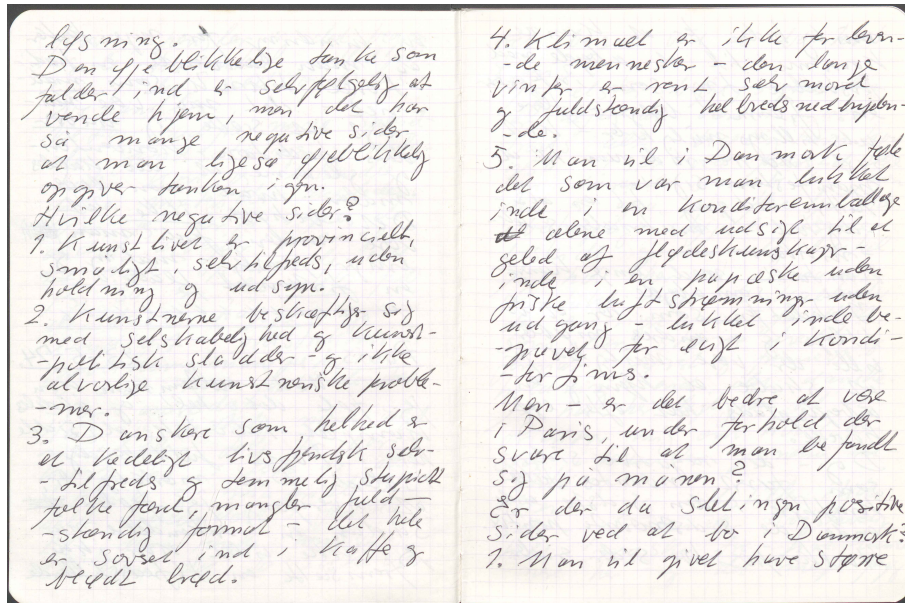 løsning.
Den øjeblikkelige tanke som
falder ind er selvfølgelig at
vende hjem, men det har
så mange negative sider
at man ligeså øjeblikkelig
opgiver tanken igen.
Hvilke negative sider?
1. Kunstlivet er provincielt,
smaligt, selvtilfreds, uden
holdning og udsyn.
2. Kunstnerne beskæftiger sig
med selskabelighed og kunst-
-politisk sladder - og ikke
alvorlige kunstneriske proble-
-mer.
3. Danskere som helhed er
et kedeligt livsfjendsk selv-
-tilfreds og temmelig stupidt
folkefærd, mangler fuld-
-stændig format - det hele
er sovset ind i kaffe og
blødt brød.
4. Klimaet er ikke for leven-
-de mennesker - den lange
vinter er rent selvmord
og fuldstændig helbredsnedbryden-
-de.
5. Man vil i Danmark føle
det som var man lukket
inde i en konditoremballage
alene med udsigt til et
geled af flødeskumskager -
inde i en papæske uden
friske luftstrømninger uden
udgang - lukket inde be-
-gravet for evigt i kondi-
-torfims.
Men - er det bedre at være
i Paris, under forhold der
svare til at man befandt
sig på månen?
Er der da slet ingen positive
sider ved at bo i Danmark?
1. Man vil givet have større